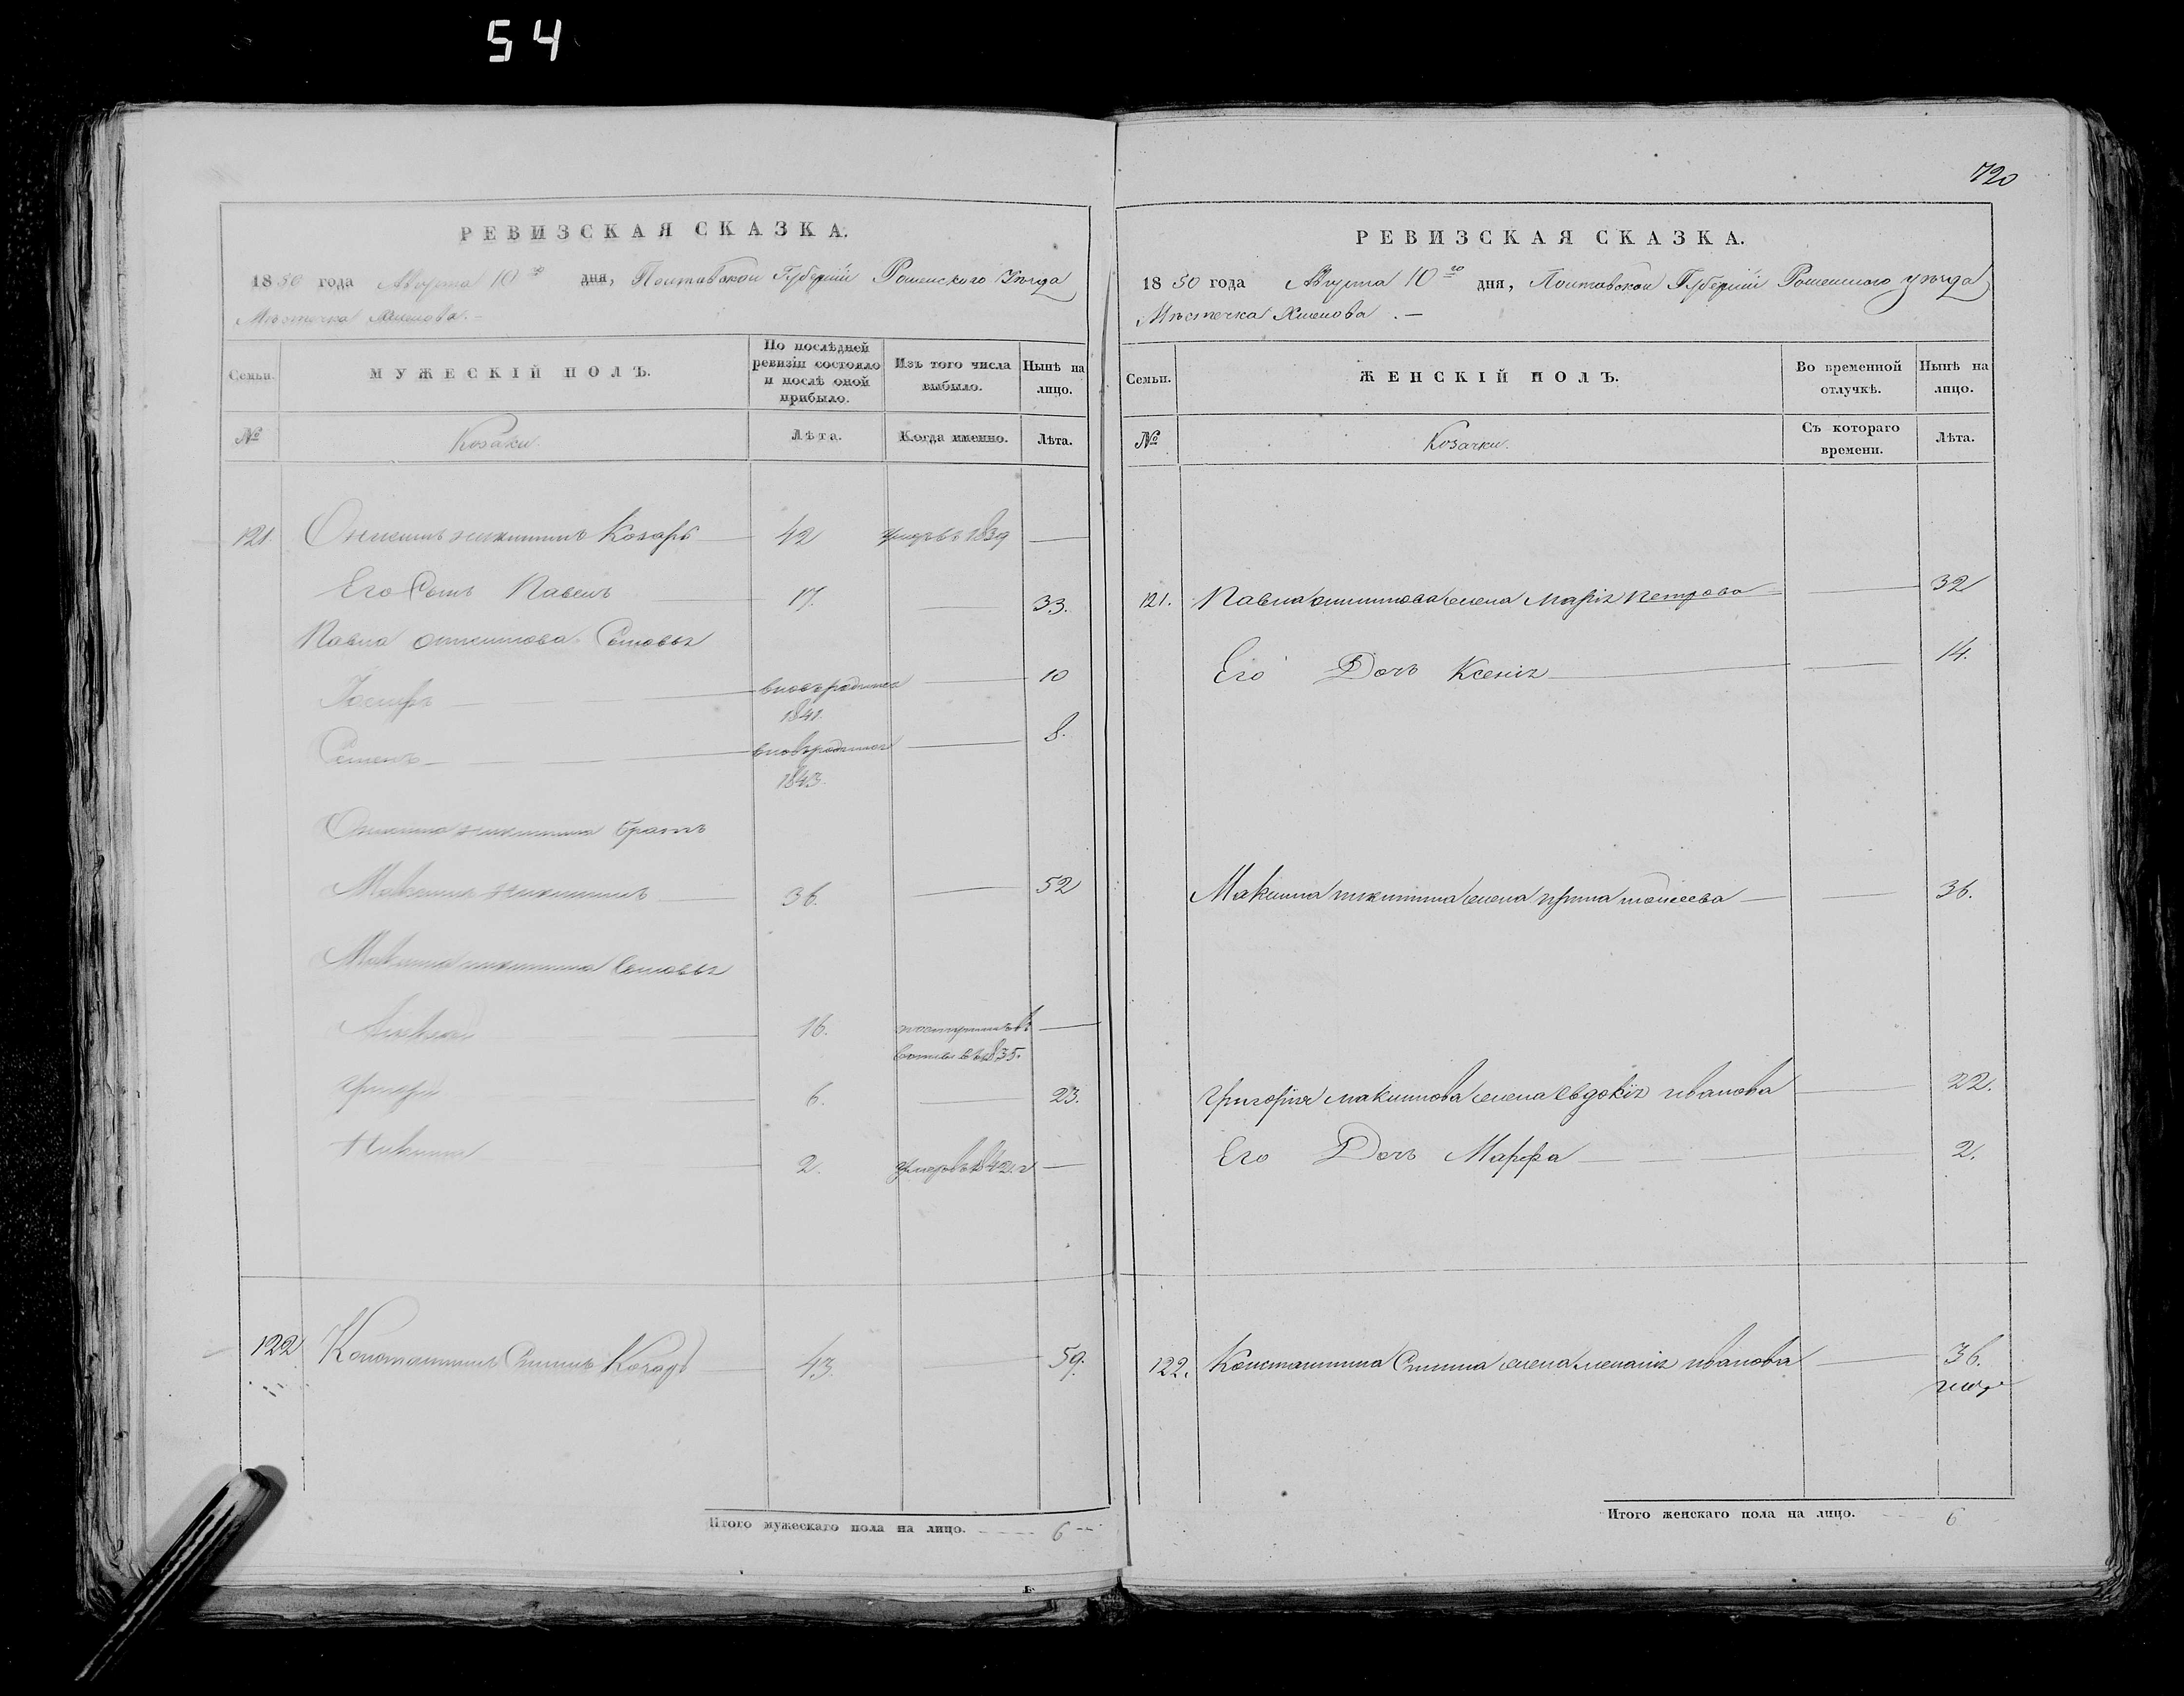 54
РЕВИЗСКАЯ СКАЗКА.
1850 года Августа 10го дня, Полтавской Губерніи Роменского Уѣзда
Мѣстечка Хмелова. –
Семьи.
МУЖЕСКІЙ ПОЛЪ.
По послѣдней ревизіи состояло и послѣ оной прибыло.
Изъ того числа выбыло.
Нынѣ на лицо.
№
Козаки.
Лѣта.
Когда именно.
Лѣта.
121. Никитинъ Козаръ 42 умеръ 1839 —
Его Сынъ Павелъ 17. 33.
Павла Сыновья
Іосифъ вновьродился 10
1841.
Семенъ вновьродился 8.
1843.
Никитина братъ
Максимъ Никитинъ 36. 52
Максима Никитина Сыновья
Алексей 16. —
1835.
Григорій 6. 23.
Никита 2. умеръ 1842.г —
122 Константинъ Козаръ 43. 59.
Итого мужескаго пола на лицо. 6
720
РЕВИЗСКАЯ СКАЗКА.
1850 года Августа 10го дня, Полтавской Губерніи Роменского уѣзда
Мѣстечка Хмелова. –
Семьи.
ЖЕНСКІЙ ПОЛЪ.
Во временной отлучкѣ.
Нынѣ на лицо.
№
Козачки.
Съ котораго времени.
Лѣта.
121. Павла жена Марія Петрова 32
Его Дочь Ксенія 14.
Максима Никитина жена Ирина моисеева 36.
Григорія максимова жена Евдокія иванова 22.
Его Дочь Марфа 2.
122. Константина жена меланія иванова 36.
Итого женскаго пола на лицо. 6